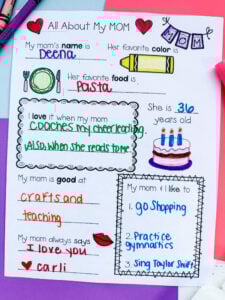 All About My MOM
MOM
My mom's name is Her favorite color is
Deena
Her favorite food is
Pasta
I love it when my mom
coaches my cheerleading.
Also, when she reads to me.
She is 36
years old
My mom is good at
crafts and
teaching
My mom always says
I love you
carli
My mom & I like to
1. go Shopping
2. Practice
gymnastics
3. Sing Taylor Swift